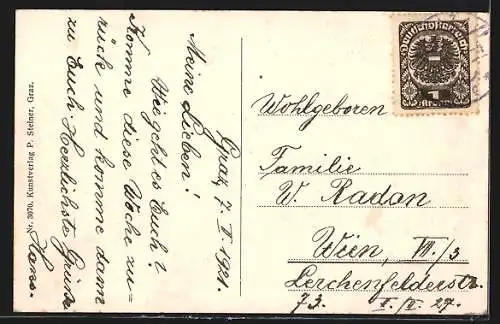 Graz, 7. II. 1921.
Meine Lieben!
Wie geht es Euch?
Komme diese Woche zu-
rück und komme dann
zu Euch. Herzlichste Grüße
Hans.
Nr. 3070. Kunstverlag P. Steiner, Graz.
Deutschösterreich
1
Wohlgeboren
Familie
W. Radon
Wien, VII./3
Lerchenfelderstr.
73. I./II. 27.